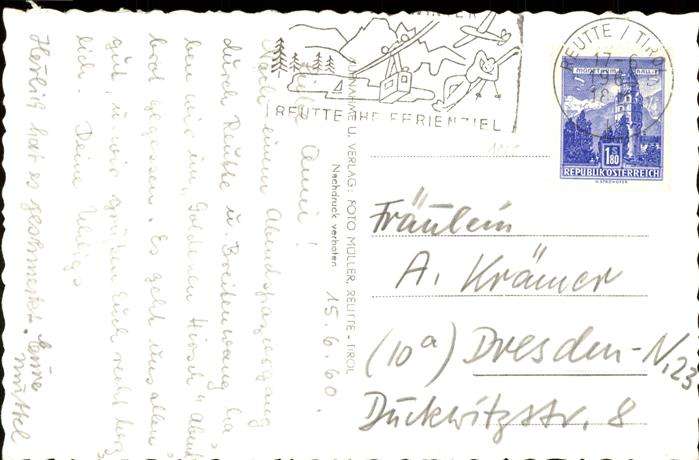 REUTTE IHR FERIENZIEL
REUTTE / TIROL
17.6
REPUBLIK ÖSTERREICH
1.80
AUFNAHME U. VERLAG: FOTO MÜLLER, REUTTE - TIROL
Nachdruck verboten
15.6.60.
Liebe Anni!
Nach einem Abendspaziergang
durch Reutte u. Breitenwang ha-
ben wir im "Goldenen Hirsch" Abend-
brot gegessen. Es geht uns allen
gut, u. wir grüßen Euch recht herz-
lich. Deine
Herrlich hat es geschmeckt. Deine
Muttel
Fräulein
A. Krämer
(10a) Dresden-N. 23
Duckwitzstr. 8